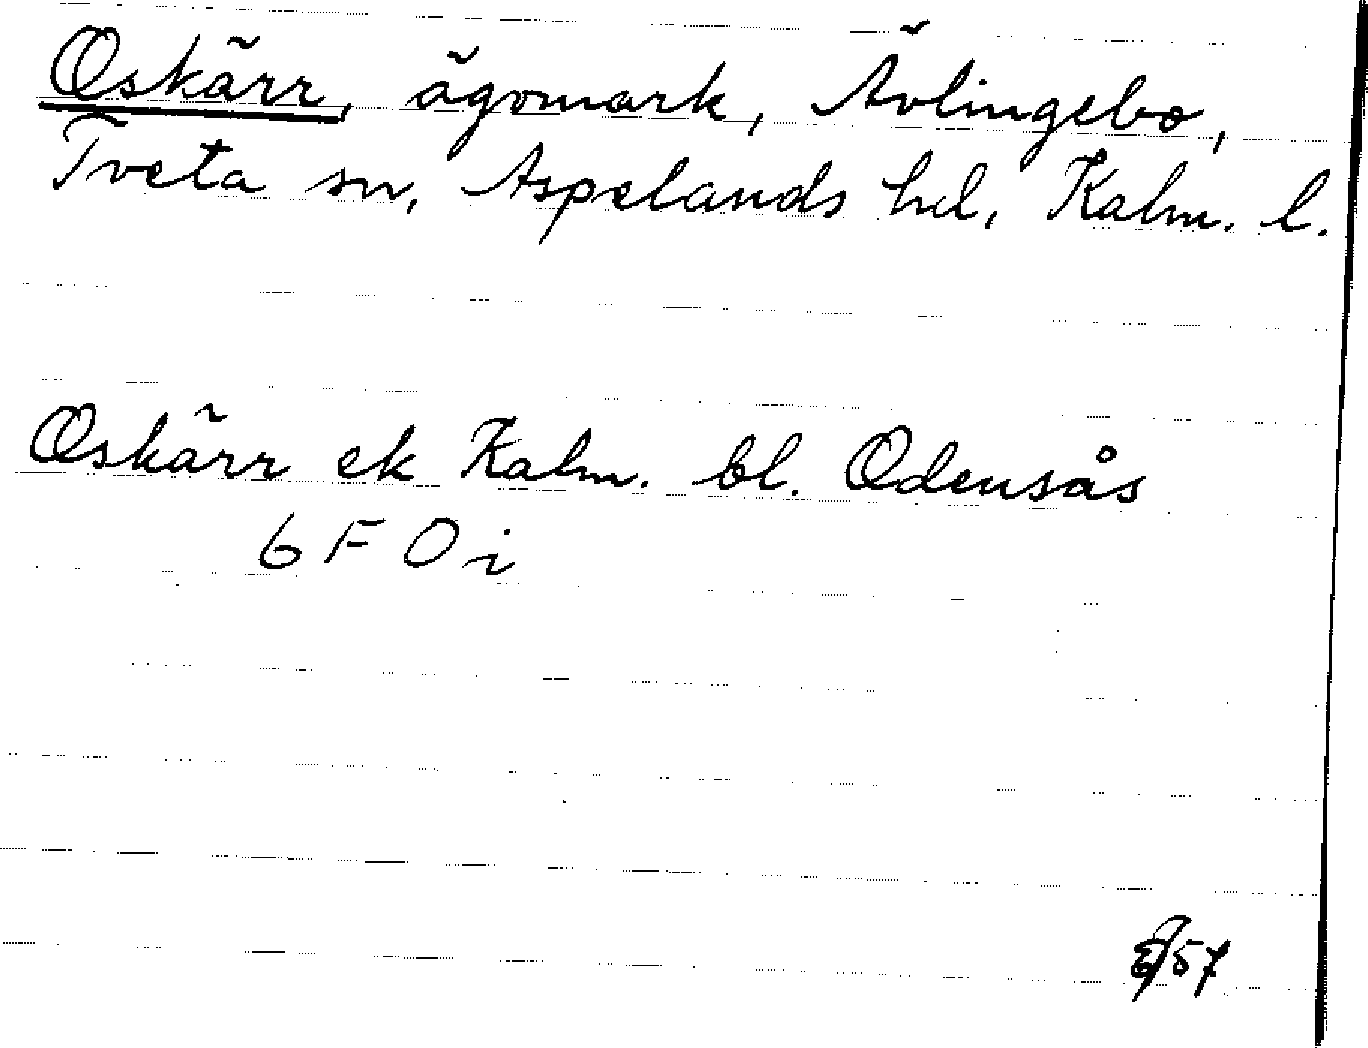 Oskärr, ägomark, Ävlingebo,
Tveta sn, Aspelands hd, Kalm. l.
Oskärr ek Kalm. bl. Odensås
6 F O i
57